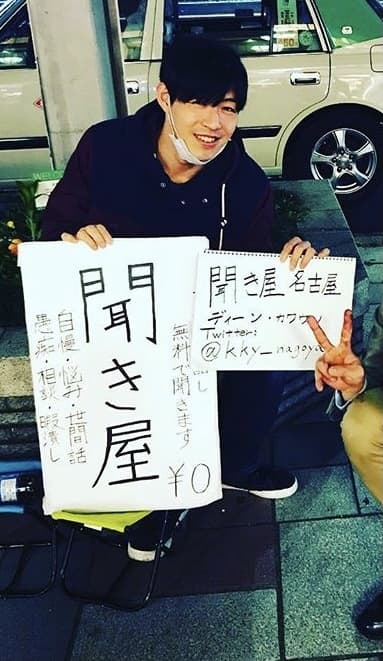 聞き屋
無料で聞きます
¥0
自慢・悩み・世間話
愚痴・相談・暇潰し
聞き屋 名古屋
ディーン・カワウソ
Twitter:
@kky_nagoya